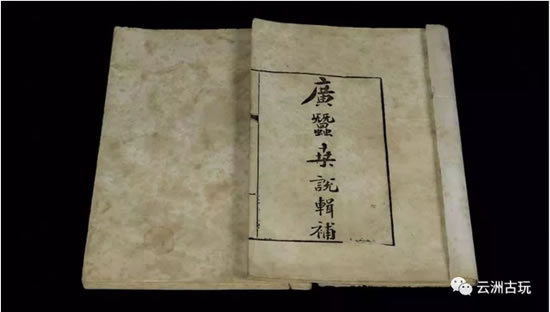 廣蠶桒說輯補
云洲古玩